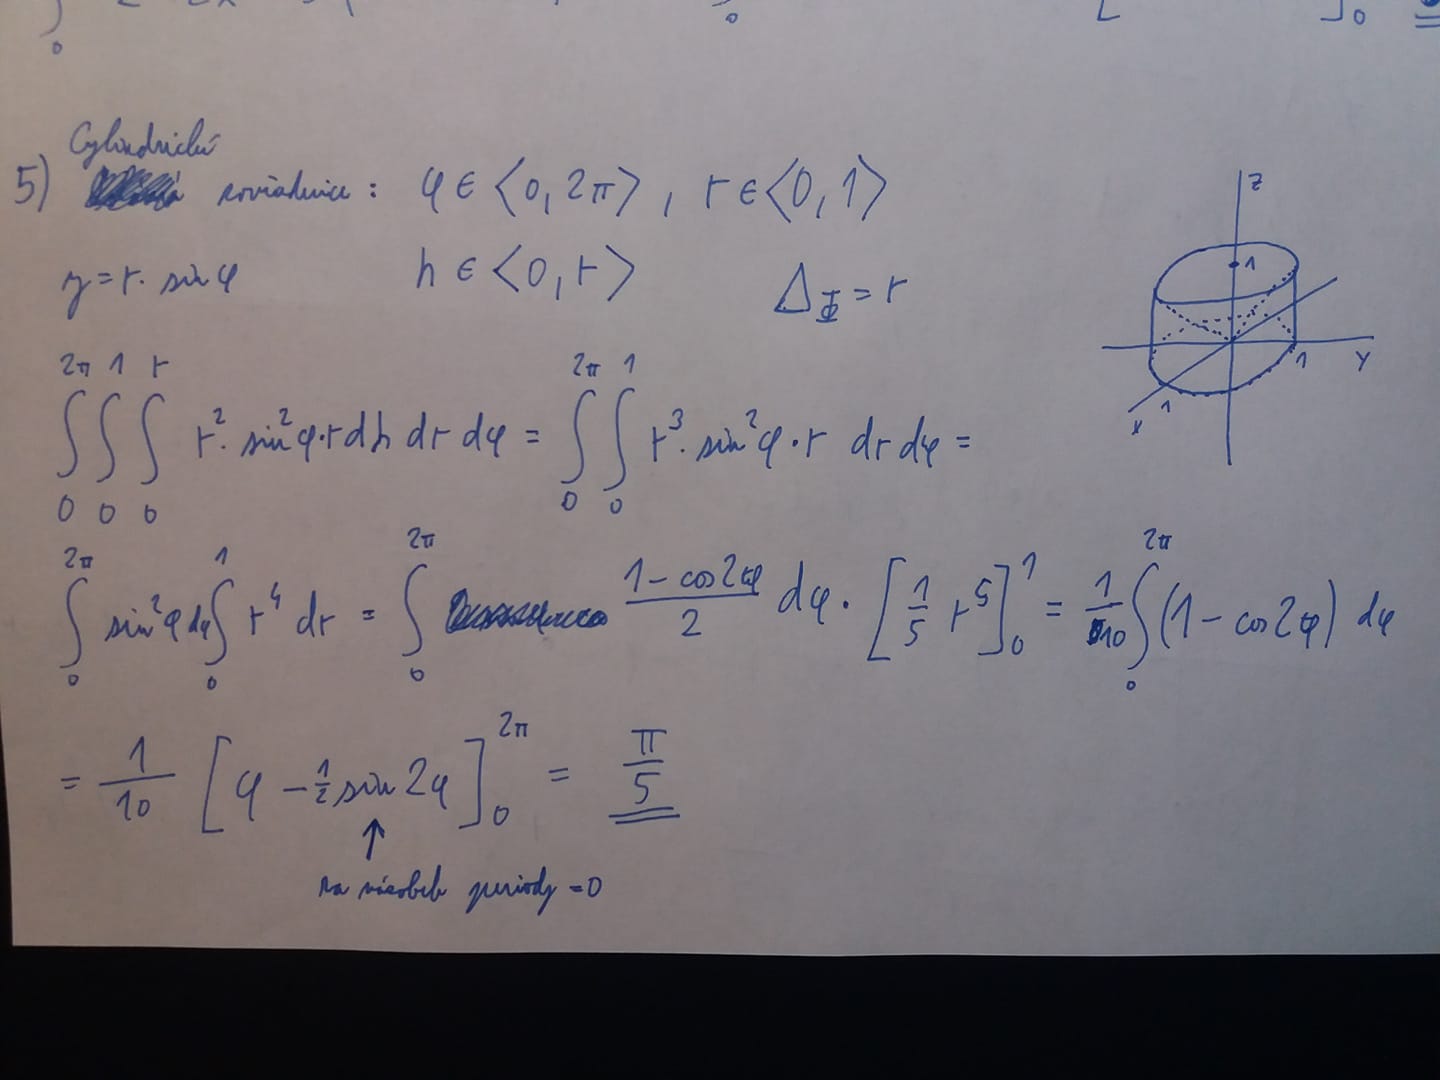 5) Cylindrické
φ ∈ ⟨0, 2π⟩, r ∈ ⟨0, 1⟩
y = r · sin φ    h ∈ ⟨0, r⟩    Δ_Φ = r
∫_0^{2π} ∫_0^1 ∫_0^r r² · sin²φ · r dh dr dφ = ∫_0^{2π} ∫_0^1 r³ · sin²φ · r dr dφ =
∫_0^{2π} sin²φ dφ ∫_0^1 r⁴ dr = ∫_0^{2π} (1 - cos 2φ)/2 dφ · [1/5 r⁵]_0^1 = 1/10 ∫_0^{2π} (1 - cos 2φ) dφ
= 1/10 [φ - 1/2 sin 2φ]_0^{2π} = π/5
↑
na násobek periody = 0
z
1
1
y
1
x